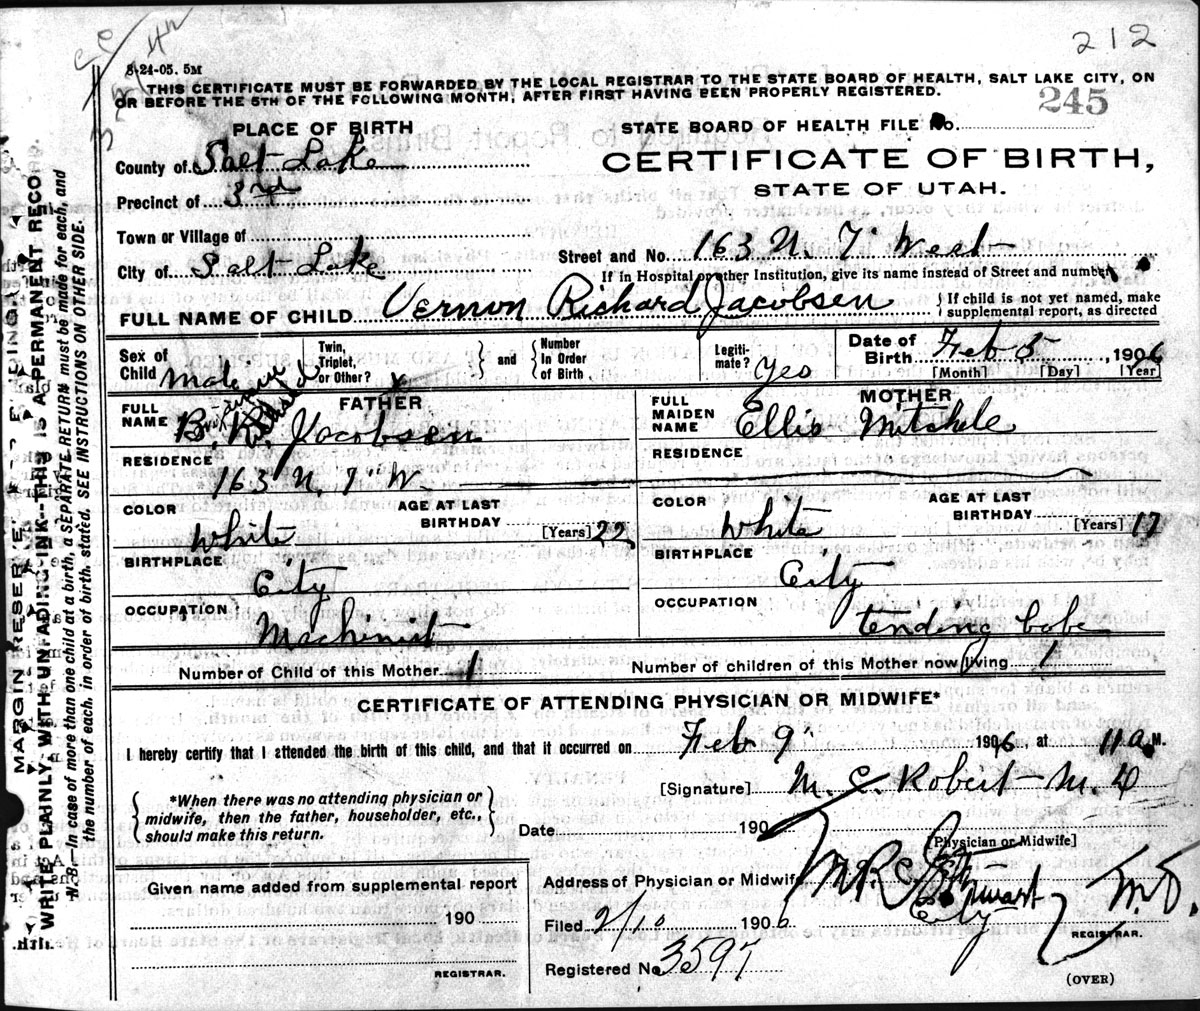 212
8-24-05. 5M
THIS CERTIFICATE MUST BE FORWARDED BY THE LOCAL REGISTRAR TO THE STATE BOARD OF HEALTH, SALT LAKE CITY, ON
OR BEFORE THE 5TH OF THE FOLLOWING MONTH, AFTER FIRST HAVING BEEN PROPERLY REGISTERED.
245
PLACE OF BIRTH
STATE BOARD OF HEALTH FILE No.
County of Salt Lake
CERTIFICATE OF BIRTH,
STATE OF UTAH.
Precinct of 3rd
Town or Village of
Street and No. 163 N. 7" West
City of Salt Lake
If in Hospital or other Institution, give its name instead of Street and number.
FULL NAME OF CHILD Vernon Richard Jacobsen
If child is not yet named, make supplemental report, as directed
Sex of Child Male
Twin, Triplet, or Other? x
and
Number In Order of Birth
Legitimate? Yes
Date of Birth Feb 5, 1906
[Month] [Day] [Year]
FATHER
MOTHER
FULL NAME B. R. Jacobsen
FULL MAIDEN NAME Ellis Mitchele
RESIDENCE 163 N. 7" W
RESIDENCE
COLOR White
AGE AT LAST BIRTHDAY [Years] 22
COLOR White
AGE AT LAST BIRTHDAY [Years] 17
BIRTHPLACE City
BIRTHPLACE City
OCCUPATION Machinist
OCCUPATION tending babe
Number of Child of this Mother 1
Number of children of this Mother now living 1
CERTIFICATE OF ATTENDING PHYSICIAN OR MIDWIFE*
I hereby certify that I attended the birth of this child, and that it occurred on Feb 9" 1906, at 11 a.M.
[Signature] M. C. Robert M. D
*When there was no attending physician or
midwife, then the father, householder, etc.,
should make this return.
Date 190
[Physician or Midwife]
Given name added from supplemental report
190
REGISTRAR.
Address of Physician or Midwife
City
Stewart M.D.
Filed 2/10 1906
REGISTRAR.
Registered No. 3597
(OVER)
MARGIN RESERVED
WRITE PLAINLY WITH UNFADING INK--THIS IS A PERMANENT RECO
N. B.--In case of more than one child at a birth, a SEPARATE RETURN must be made for each, and
the number of each, in order of birth, stated. SEE INSTRUCTIONS ON OTHER SIDE.